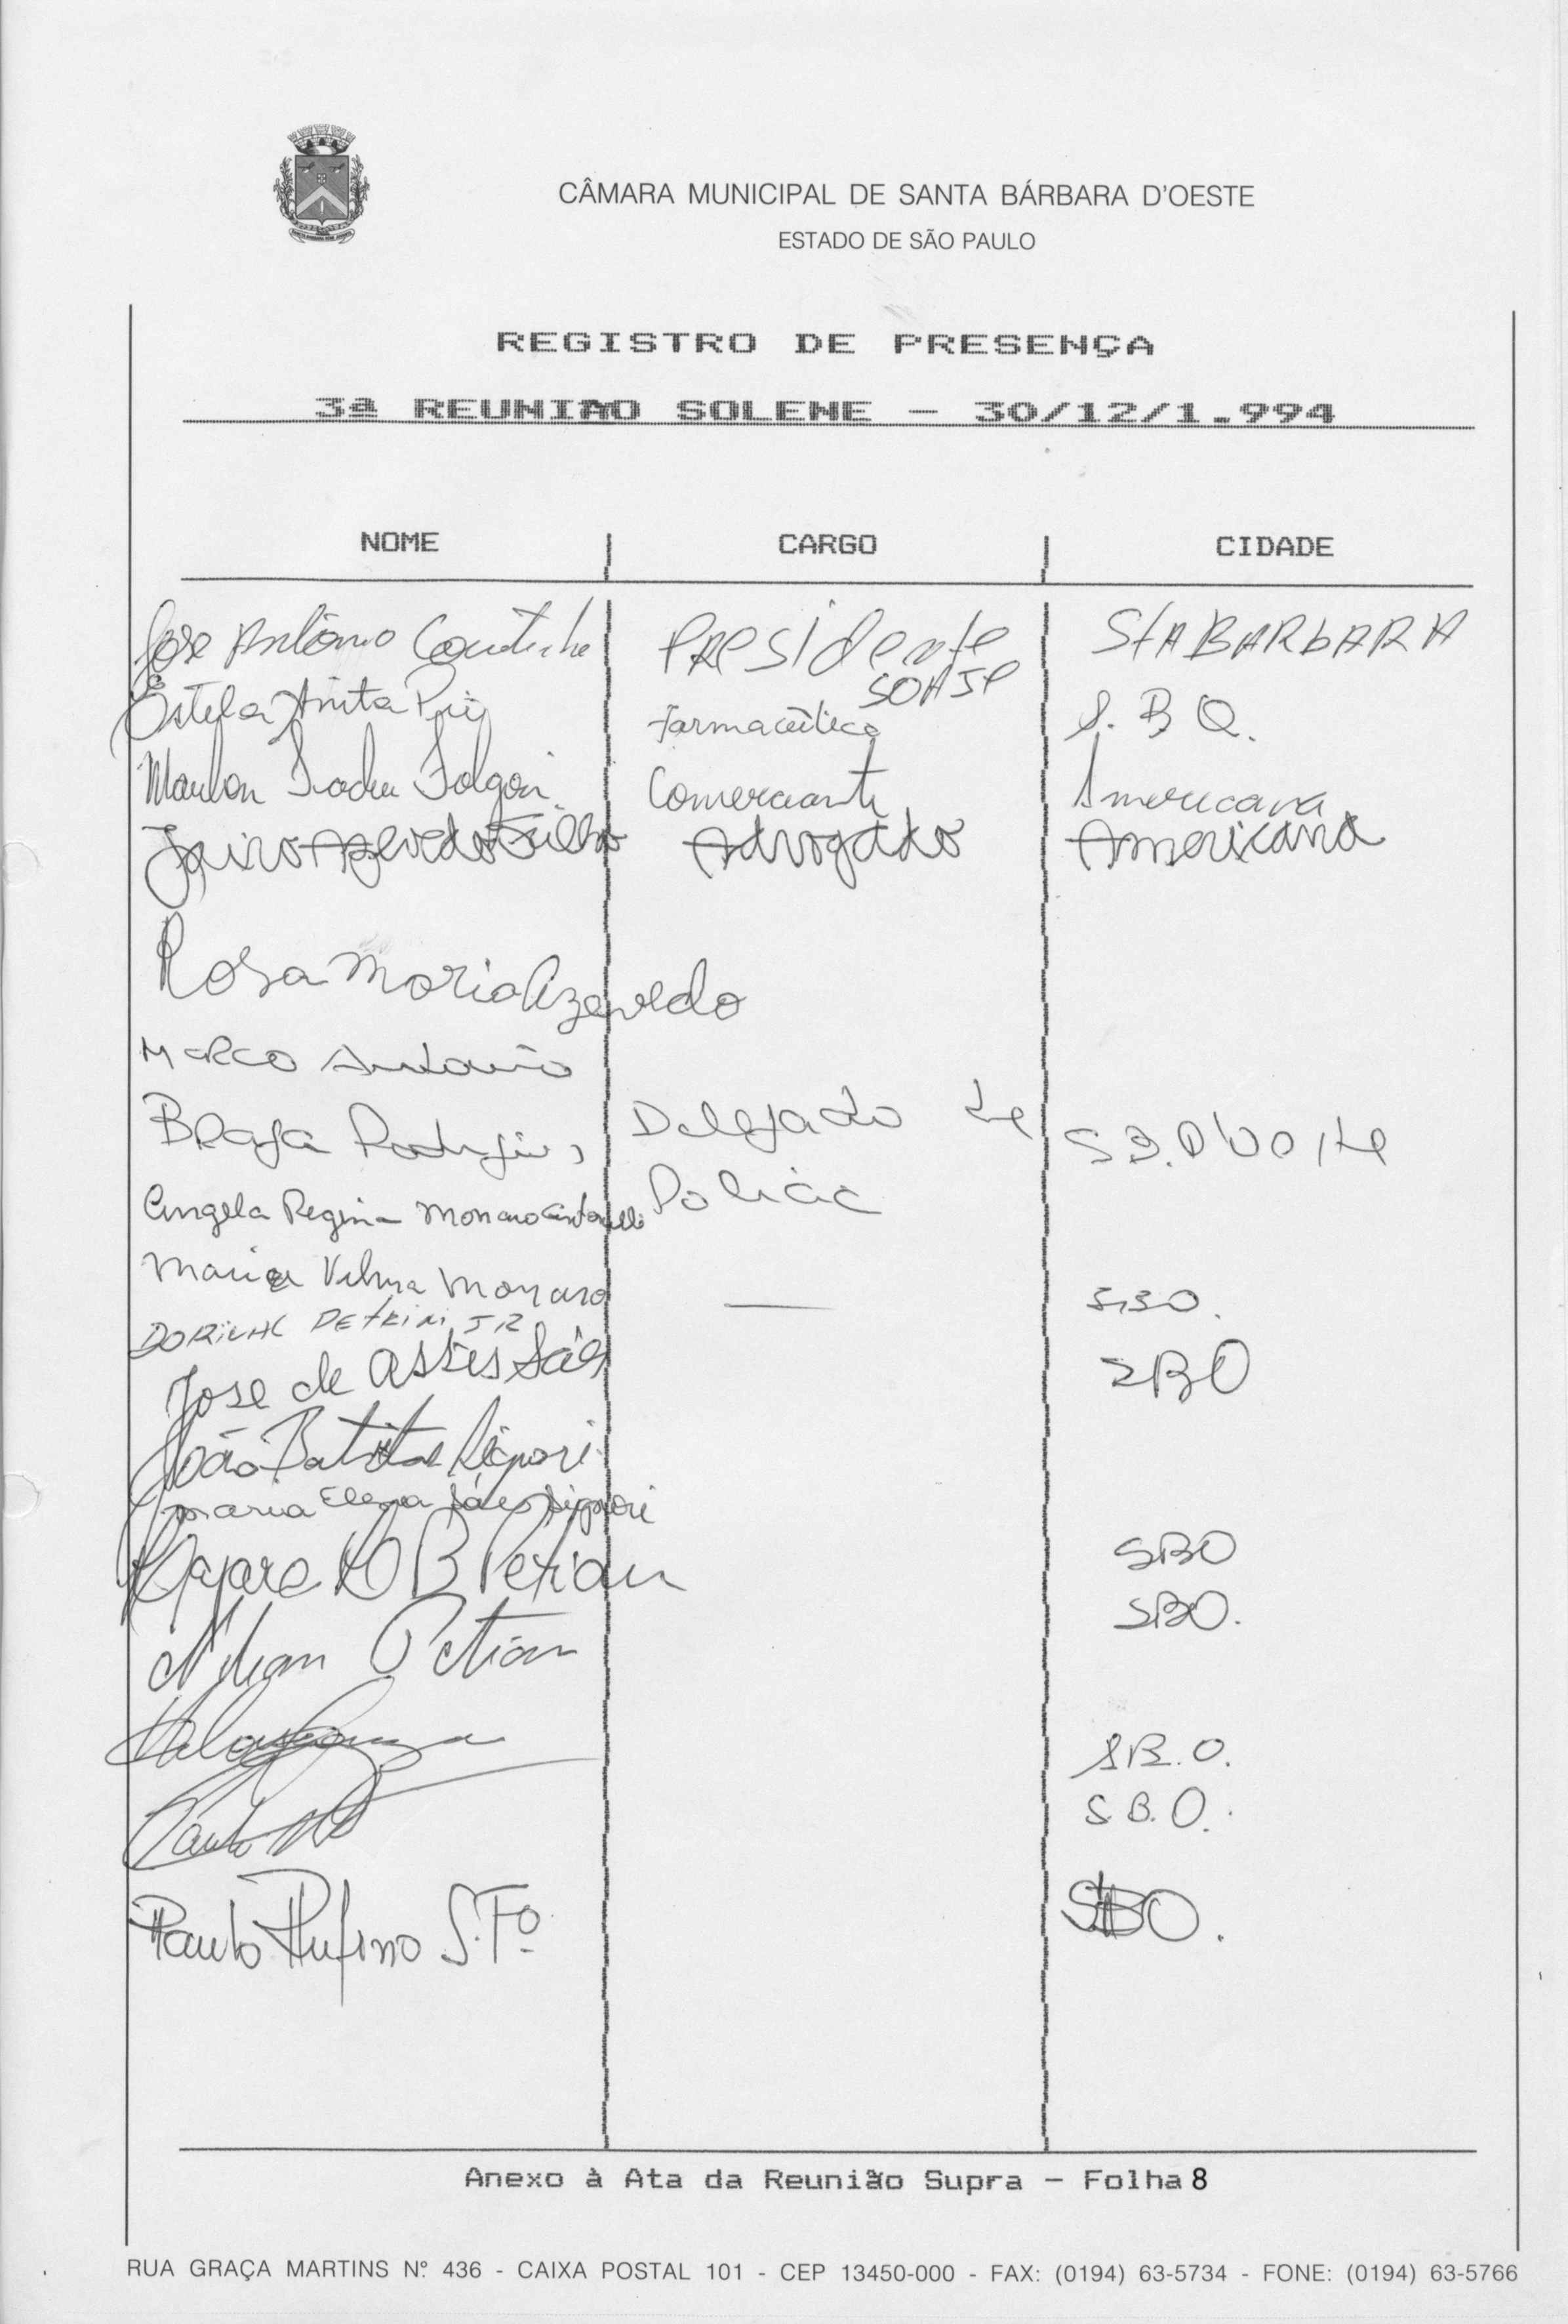 CÂMARA MUNICIPAL DE SANTA BÁRBARA D'OESTE
ESTADO DE SÃO PAULO
REGISTRO DE PRESENÇA
3ª REUNIÃO SOLENE - 30/12/1.994
NOME CARGO CIDADE
José Antônio Coutinho Presidente StA BARbARA
SOAJP
Estela Anita Farmacêutica S.B.O.
Marlon Comerciante Americana
Jairo Azevedo Filho Advogado Americana
Rosa Maria Azevedo
Marco Antonio
Braga Rodrigues Delegado de S.B.D'Oeste
Angela Regina Monaro Antonelli Policia
Maria Vilma Monaro — SBO.
DORIVAL PETRINI JR
Jose de Assis Sáes SBO
João Batista Signori
Maria Elena Sáes Signori
SBO
Petian SBO.
S.B.O.
Paulo S.B.O.
Paulo Rufino S. Fº SBO.
Anexo à Ata da Reunião Supra - Folha 8
RUA GRAÇA MARTINS Nº 436 - CAIXA POSTAL 101 - CEP 13450-000 - FAX: (0194) 63-5734 - FONE: (0194) 63-5766